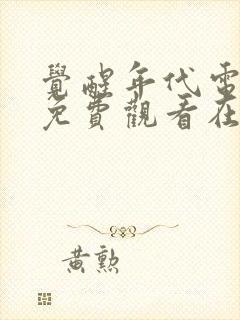 覺醒年代電
免費觀看在
黃勲